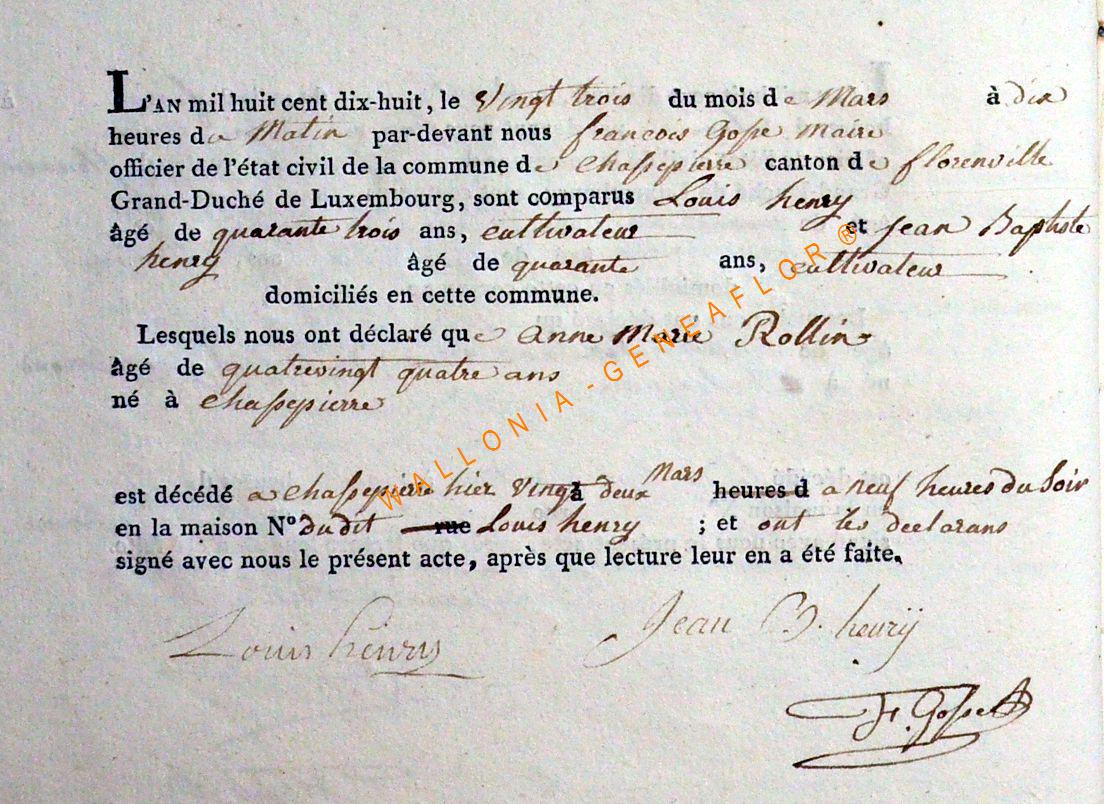 L'AN mil huit cent dix-huit, le Vingt trois du mois de Mars à dix
heures de Matin par-devant nous françois Gosse Maire
officier de l'état civil de la commune de Chassepierre canton de florenville
Grand-Duché de Luxembourg, sont comparus Louis henry
âgé de quarante trois ans, cultivateur et Jean Baptiste
henry âgé de quarante ans, cultivateur
domiciliés en cette commune.
Lesquels nous ont déclaré que anne Marie Rollin
âgé de quatrevingt quatre ans
né à Chassepierre
est décédé a Chassepierre hier Vingt à deux Mars heures d a neuf heures du Soir
en la maison N° dudit rue Louis henry ; et ont les declarans
signé avec nous le présent acte, après que lecture leur en a été faite.
Louis henry Jean B. henrÿ
F. Gosse
WALLONIA - GENEAFLOR ®